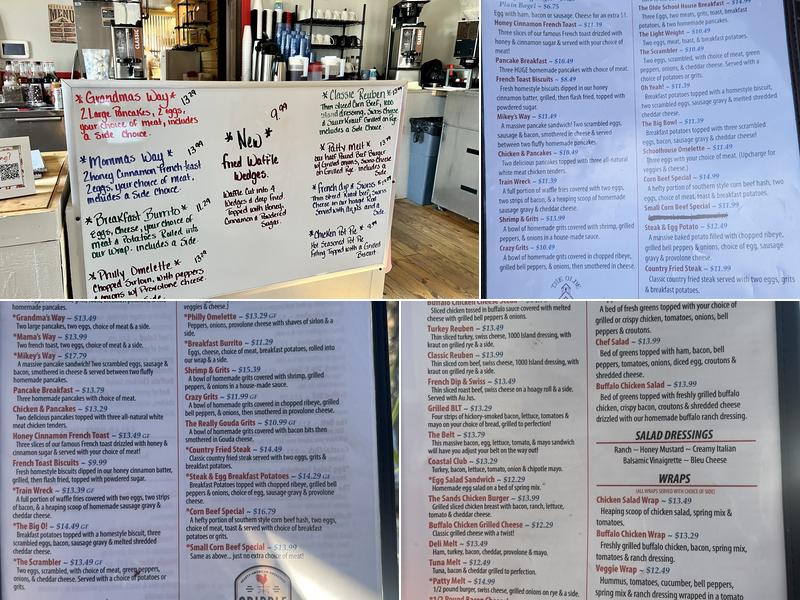 MENU
CLASSIC
* Grandmas Way * 13.29
2 large Pancakes, 2 eggs,
your choice of meat, includes
a Side Choice.
* Mommas Way * 13.99
2 honey Cinnamon French toast
2 eggs, your choice of meat,
includes a Side.
* Breakfast Burrito * 11.29
Eggs, cheese, your choice of
meat & Potatoes Rolled into
our wrap. includes a Side.
* Philly Omelette * 13.29
Chopped Sirloin, with peppers
& onions w/ Provolone cheese.
Side.
9.99
* New *
fried Waffle
Wedges.
Waffle Cut into 4
Wedges & deep fried.
topped with honey,
Cinnamon & Powdered
Sugar.
* Classic Reuben * 13.99
Thin sliced Corn Beef, 1000
island dressing, Swiss Cheese
& Sauer Kraut Grilled on Rye
includes a Side Choice
* Patty melt *
our half Pound Beef Burger
w/ Grilled onions, Swiss cheese
on Grilled Rye. includes a
Side
* French dip & Swiss *
* Chicken Pot Pie * 9.99
Hot Seasoned Pot Pie
Filling Topped with a Grilled
Biscuit
Plain Bagel ~ $6.75
Egg with ham, bacon or sausage. Cheese for an extra $1.
Honey Cinnamon French Toast ~ $11.39
Three slices of our famous French toast drizzled with
honey & cinnamon sugar & served with your choice of
meat!
Pancake Breakfast ~ $10.49
Three HUGE homemade pancakes with choice of meat.
French Toast Biscuits ~ $8.49
Fresh homestyle biscuits dipped in our honey
cinnamon batter, grilled, then flash fried, topped with
powdered sugar.
Mikey's Way ~ $11.49
A massive pancake sandwich! Two scrambled eggs,
sausage & bacon, smothered in cheese & served
between two fluffy homemade pancakes.
Chicken & Pancakes ~ $10.49
Two delicious pancakes topped with three all-natural
white meat chicken tenders.
Train Wreck ~ $11.39
A full portion of waffle fries covered with two eggs,
two strips of bacon, & a heaping scoop of homemade
sausage gravy & cheddar cheese.
Shrimp & Grits ~ $13.99
A bowl of homemade grits covered with shrimp, grilled
peppers, & onions in a house-made sauce.
Crazy Grits ~ $10.49
A bowl of homemade grits covered with chopped ribeye,
grilled bell peppers & onions, then smothered in cheese.
The Olde School House Breakfast ~ $14.99
Three Eggs, two meats, grits, toast, breakfast
potatoes, & two homemade pancakes.
The Light Weight ~ $10.49
Two eggs, meat, toast, & breakfast potatoes.
The Scrambler ~ $10.49
Two eggs, scrambled, with choice of meat, green
peppers, onions, & cheddar cheese. Served with a
choice of potatoes or grits.
Oh Yeah! ~ $11.39
Breakfast potatoes topped with a homestyle biscuit,
two scrambled eggs, sausage gravy & melted shredded
cheddar cheese.
The Big Bowl ~ $11.39
Breakfast potatoes topped with three scrambled
eggs, bacon, sausage gravy & cheddar cheese!
Schoolhouse Omelette ~ $11.49
Three eggs with your choice of meat. (Upcharge for
veggies & cheese.)
Corn Beef Special ~ $14.99
A hefty portion of southern style corn beef hash, two
eggs, choice of meat, toast, & choice of side.
Small Corn Beef Special ~ $11.99
Steak & Egg Potato ~ $12.49
A massive baked potato filled with chopped ribeye,
grilled bell peppers & onions, choice of egg, sausage
gravy & provolone cheese.
Country Fried Steak ~ $11.99
Classic country fried steak served with two eggs, grits
& breakfast potatoes.
THE OLDE
homemade pancakes.
*Grandma's Way ~ $13.49
Two large pancakes, two eggs, choice of meat & a side.
*Mama's Way ~ $13.99
Two french toast, two eggs, choice of meat & a side.
*Mikey's Way ~ $17.79
A massive pancake sandwich! Two scrambled eggs, &
sausage, smothered in cheese & served between two fluffy
homemade pancakes.
Pancake Breakfast ~ $13.79
Three homemade pancakes with choice of meat.
Chicken & Pancakes ~ $13.29
Two delicious pancakes topped with three all-white natural
meat chicken tenders.
Honey Cinnamon French Toast ~ $13.49 GF
Three slices of our famous French toast drizzled with honey &
cinnamon sugar & served with your choice of meat!
French Toast Biscuits ~ $9.99
Fresh homestyle biscuits dipped in our honey cinnamon batter,
grilled, then flash fried, topped with powdered sugar.
*Train Wreck ~ $13.39 GF
A full portion of waffle fries covered with two eggs, two strips
of bacon, & a heaping scoop of homemade sausage gravy &
cheddar cheese.
*The Big O! ~ $14.49 GF
Breakfast potatoes topped with a homestyle biscuit, three
scrambled eggs, bacon, sausage gravy & melted shredded
cheddar cheese.
*The Scrambler ~ $13.49 GF
Two eggs, scrambled, with choice of meat, green peppers,
onions, & cheddar cheese. Served with a choice of potatoes or
grits.
veggies & cheese.)
*Philly Omelette ~ $13.29 GF
Peppers, onions, provolone cheese with shaves of sirloin & a
side.
*Breakfast Burrito ~ $11.29
Eggs, cheese, choice of meat, breakfast potatoes, rolled into
our wrap & a side.
Shrimp & Grits ~ $15.39
A bowl of homemade grits covered with shrimp, grilled
peppers, & onions in a house-made sauce.
Crazy Grits ~ $11.99 GF
A bowl of homemade grits covered with chopped ribeye, grilled
bell peppers, & onions, then smothered in provolone cheese.
The Really Gouda Grits ~ $10.99 GF
A bowl of homemade grits covered with bacon bits then
smothered in Gouda cheese.
*Country Fried Steak ~ $14.49
Classic country fried steak served with two eggs, grits &
breakfast potatoes.
*Steak & Egg Breakfast Potatoes ~ $14.29 GF
Breakfast Potatoes topped with chopped ribeye, grilled bell
peppers & onions, choice of egg, sausage gravy & provolone
cheese.
*Corn Beef Special ~ $16.79
A hefty portion of southern style corn beef hash, two eggs,
choice of meat, toast & served with choice of breakfast
potatoes or grits.
*Small Corn Beef Special ~ $13.99
Same as above... just no extra choice of meat!
GRIDDLE
Buffalo Chicken Cheese Steak
Sliced chicken tossed in buffalo sauce covered with melted
cheese with grilled bell peppers & onions.
Turkey Reuben ~ $13.49
Thin sliced turkey, swiss cheese, 1000 Island dressing, with
kraut on grilled rye & a side.
Classic Reuben ~ $13.99
Thin sliced corn beef, swiss cheese, 1000 Island dressing, with
kraut on grilled rye & a side.
French Dip & Swiss ~ $13.49
Thin sliced roast beef, swiss cheese on a hoagy roll & a side.
Served with Au Jus.
Grilled BLT ~ $13.29
Four strips of hickory-smoked bacon, lettuce, tomatoes &
mayo on your choice of bread, grilled to perfection!
The Belt ~ $13.79
This massive bacon, egg, lettuce, tomato, & mayo sandwich
will have you adjust your belt on the way out!
Coastal Club ~ $13.29
Turkey, bacon, lettuce, tomato, onion & chipotle mayo.
*Egg Salad Sandwich ~ $12.29
Homemade egg salad on a bed of spring mix.
The Sands Chicken Burger ~ $13.99
Grilled sliced chicken breast with bacon, ranch, lettuce,
tomato & cheddar cheese.
Buffalo Chicken Grilled Cheese ~ $12.29
Classic grilled cheese with a twist!
Deli Melt ~ $13.49
Ham, turkey, bacon, cheddar, provolone & mayo.
Tuna Melt ~ $12.49
Tuna, bacon & cheddar grilled to perfection.
*Patty Melt ~ $14.99
1/2 pound burger, swiss cheese, grilled onions on rye & a side.
A bed of fresh greens topped with your choice of
grilled or crispy chicken, tomatoes, onions, bell
peppers & croutons.
Chef Salad ~ $13.99
Bed of greens topped with ham, bacon, bell
peppers, tomatoes, onions, diced egg, croutons &
shredded cheese.
Buffalo Chicken Salad ~ $13.99
Bed of greens topped with freshly grilled buffalo
chicken, crispy bacon, croutons & shredded cheese
drizzled with our homemade buffalo ranch dressing.
SALAD DRESSINGS
Ranch ~ Honey Mustard ~ Creamy Italian
Balsamic Vinaigrette ~ Bleu Cheese
WRAPS
(ALL WRAPS SERVED WITH CHOICE OF SIDE)
Chicken Salad Wrap ~ $13.49
Heaping scoop of chicken salad, spring mix &
tomatoes.
Buffalo Chicken Wrap ~ $13.29
Freshly grilled buffalo chicken, bacon, spring mix,
tomatoes & ranch dressing.
Veggie Wrap ~ $12.49
Hummus, tomatoes, cucumber, bell peppers,
spring mix & ranch dressing wrapped in a tomato